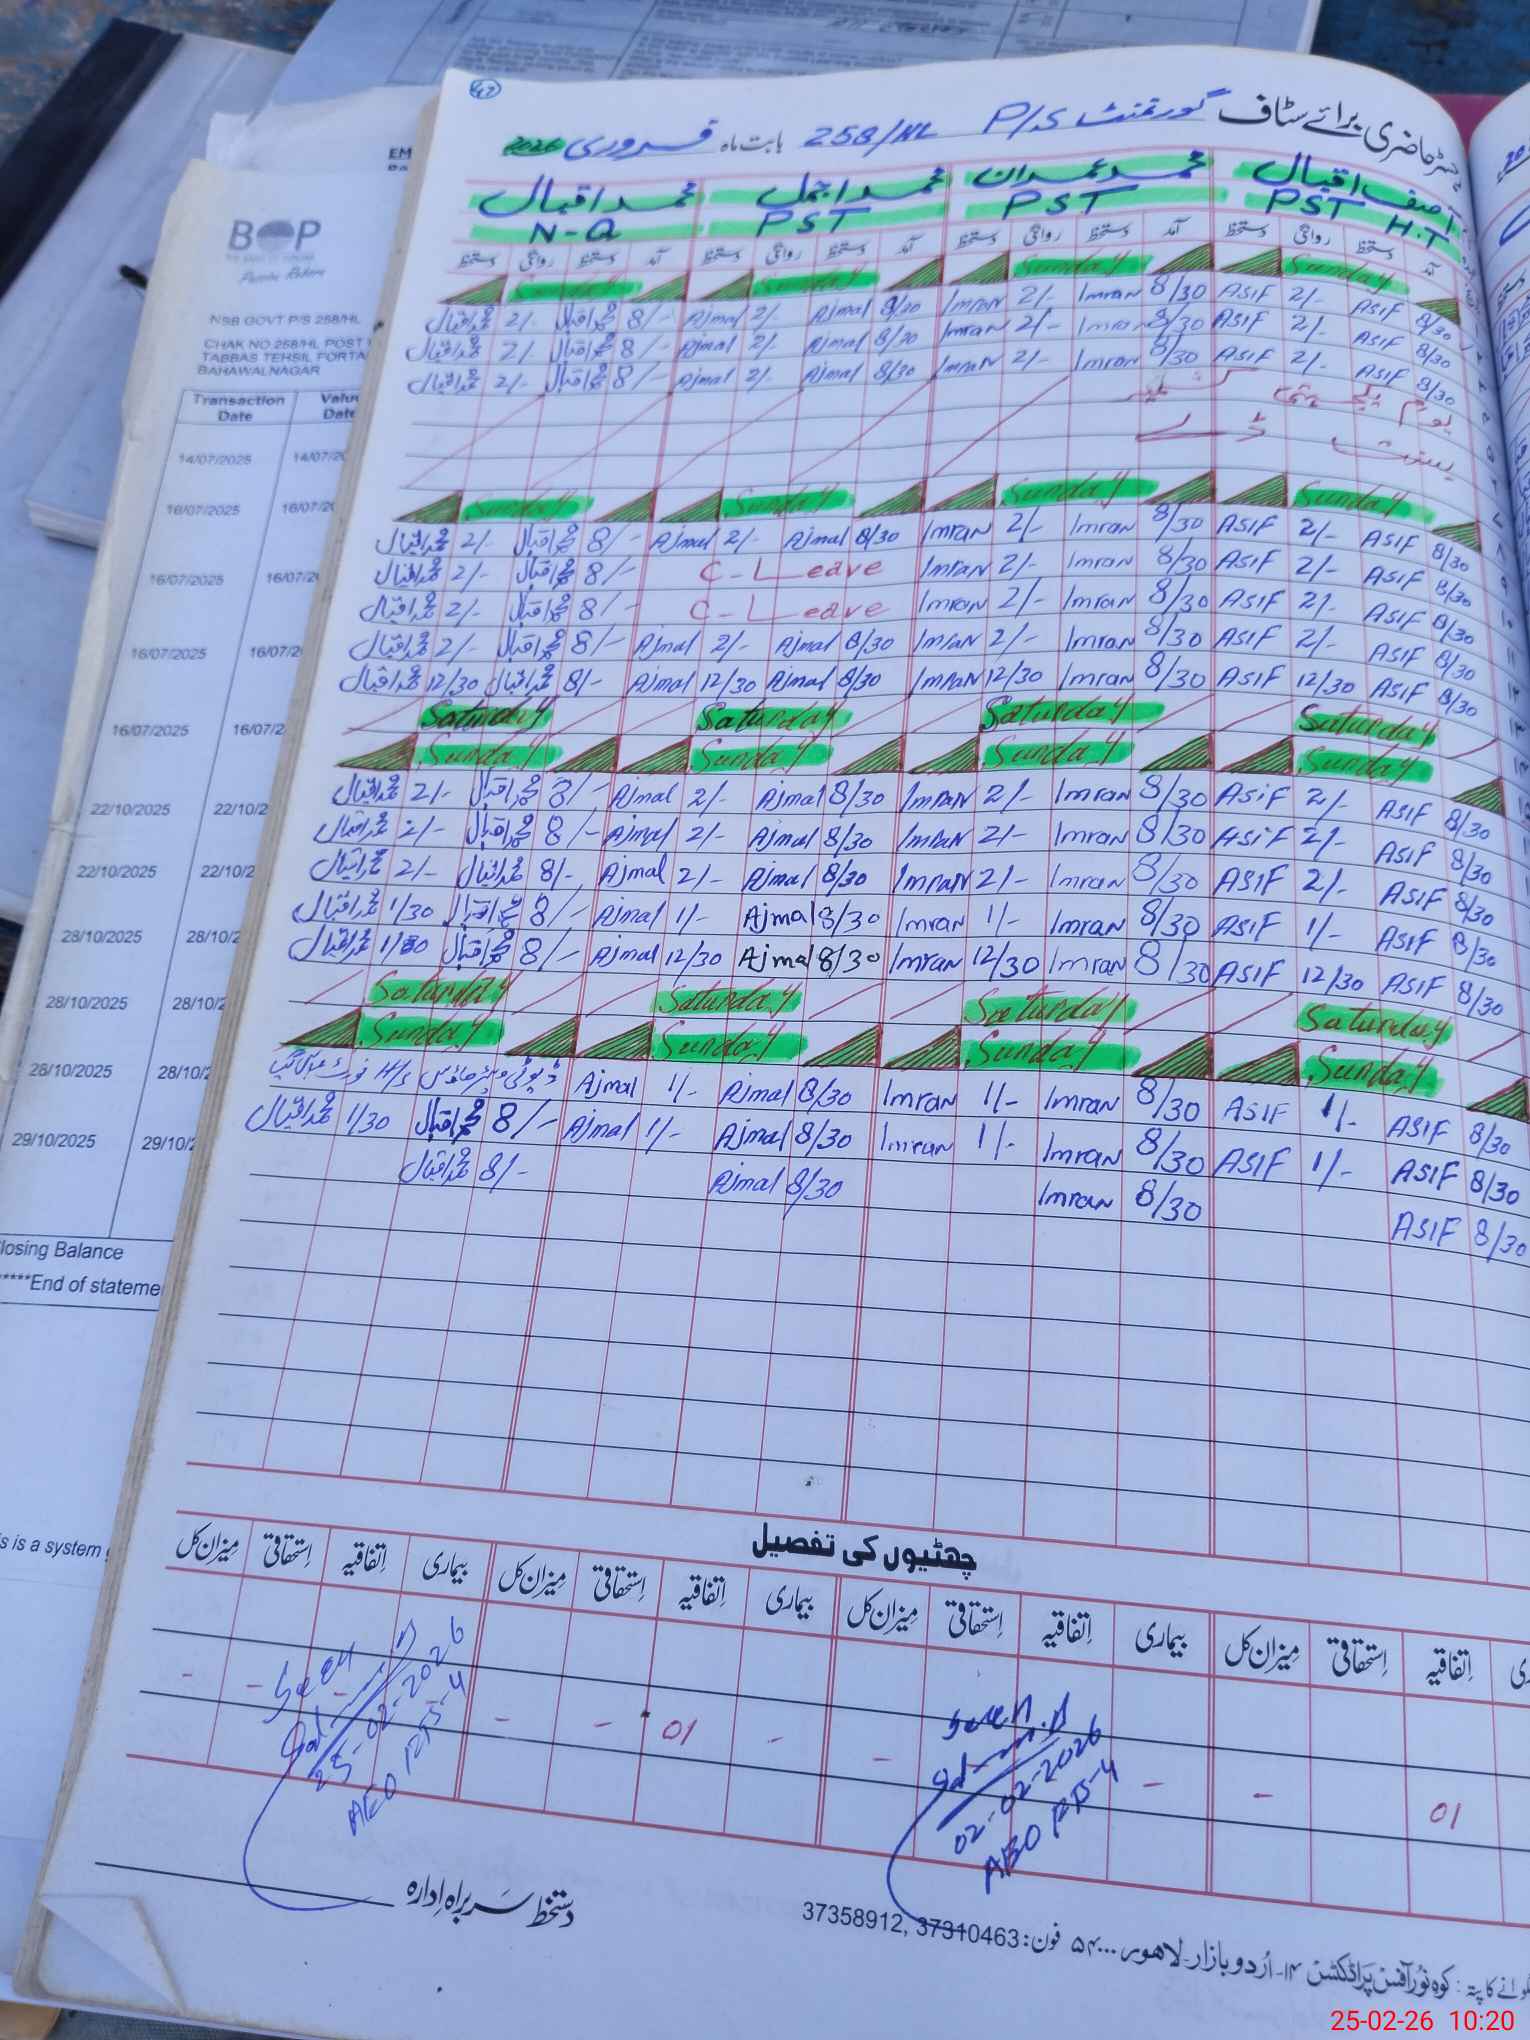 42
رجسٹر حاضری برائے سٹاف گورنمنٹ P/S 258/HL بابت ماہ فروری 2026
آصف اقبال محمد عمران محمد اجمل محمد اقبال
PST H.T PST PST N-Q
آمد دستخط روانگی دستخط آمد دستخط روانگی دستخط آمد دستخط روانگی دستخط آمد دستخط روانگی دستخط
Sunday Sunday Sunday Sunday
محمد اقبال 2/- محمد اقبال 8/- Ajmal 2/- Ajmal 8/30 Imran 2/- Imran 8/30 ASIF 2/- ASIF 8/30
محمد اقبال 2/- محمد اقبال 8/- Ajmal 2/- Ajmal 8/30 Imran 2/- Imran 8/30 ASIF 2/- ASIF 8/30
محمد اقبال 2/- محمد اقبال 8/- Ajmal 2/- Ajmal 8/30 Imran 2/- Imran 8/30 ASIF 2/- ASIF 8/30
یوم یکجہتی کشمیر
بسنت
Sunday Sunday Sunday Sunday
محمد اقبال 2/- محمد اقبال 8/- Ajmal 2/- Ajmal 8/30 Imran 2/- Imran 8/30 ASIF 2/- ASIF 8/30
محمد اقبال 2/- محمد اقبال 8/- C-Leave Imran 2/- Imran 8/30 ASIF 2/- ASIF 8/30
محمد اقبال 2/- محمد اقبال 8/- C-Leave Imran 2/- Imran 8/30 ASIF 2/- ASIF 8/30
محمد اقبال 2/- محمد اقبال 8/- Ajmal 2/- Ajmal 8/30 Imran 2/- Imran 8/30 ASIF 2/- ASIF 8/30
محمد اقبال 12/30 محمد اقبال 8/- Ajmal 12/30 Ajmal 8/30 Imran 12/30 Imran 8/30 ASIF 12/30 ASIF 8/30
Saturday Saturday Saturday Saturday
Sunday Sunday Sunday Sunday
محمد اقبال 2/- محمد اقبال 8/- Ajmal 2/- Ajmal 8/30 Imran 2/- Imran 8/30 ASIF 2/- ASIF 8/30
محمد اقبال 2/- محمد اقبال 8/- Ajmal 2/- Ajmal 8/30 Imran 2/- Imran 8/30 ASIF 2/- ASIF 8/30
محمد اقبال 2/- محمد اقبال 8/- Ajmal 2/- Ajmal 8/30 Imran 2/- Imran 8/30 ASIF 2/- ASIF 8/30
محمد اقبال 1/30 محمد اقبال 8/- Ajmal 1/- Ajmal 8/30 Imran 1/- Imran 8/30 ASIF 1/- ASIF 8/30
محمد اقبال 1/30 محمد اقبال 8/- Ajmal 12/30 Ajmal 8/30 Imran 12/30 Imran 8/30 ASIF 12/30 ASIF 8/30
Saturday Saturday Saturday Saturday
Sunday Sunday Sunday Sunday
ڈیوٹی H/S فورٹ عباس Ajmal 1/- Ajmal 8/30 Imran 1/- Imran 8/30 ASIF 1/- ASIF 8/30
محمد اقبال 1/30 محمد اقبال 8/- Ajmal 1/- Ajmal 8/30 Imran 1/- Imran 8/30 ASIF 1/- ASIF 8/30
محمد اقبال 8/- Ajmal 8/30 Imran 8/30 ASIF 8/30
چھٹیوں کی تفصیل
اتفاقیہ استحقاقی میزان کل بیماری اتفاقیہ استحقاقی میزان کل بیماری اتفاقیہ استحقاقی میزان کل بیماری اتفاقیہ استحقاقی میزان کل
- - - - - 01 - - - - 01
Seen
25-02-2026
AEO
Seen
02-02-2026
AEO
دستخط سربراہ ادارہ
کوہ نور آفس پراڈکٹس ۱۴-اُردو بازار-لاہور ۵۴۰۰۰ فون: 37310463 ,37358912
BOP
THE BANK OF PUNJAB
NSB GOVT P/S 258/HL
CHAK NO 258/HL POST
TABBAS TEHSIL FORTA
BAHAWALNAGAR
Transaction Date Value Date
14/07/2025 14/07/2
16/07/2025 16/07/20
16/07/2025 16/07/20
16/07/2025 16/07/2
16/07/2025 16/07/2
22/10/2025 22/10/2
22/10/2025 22/10/2
28/10/2025 28/10/2
28/10/2025 28/10/2
28/10/2025 28/10/2
29/10/2025 29/10/2
losing Balance
*****End of stateme
s is a system
25-02-26 10:20